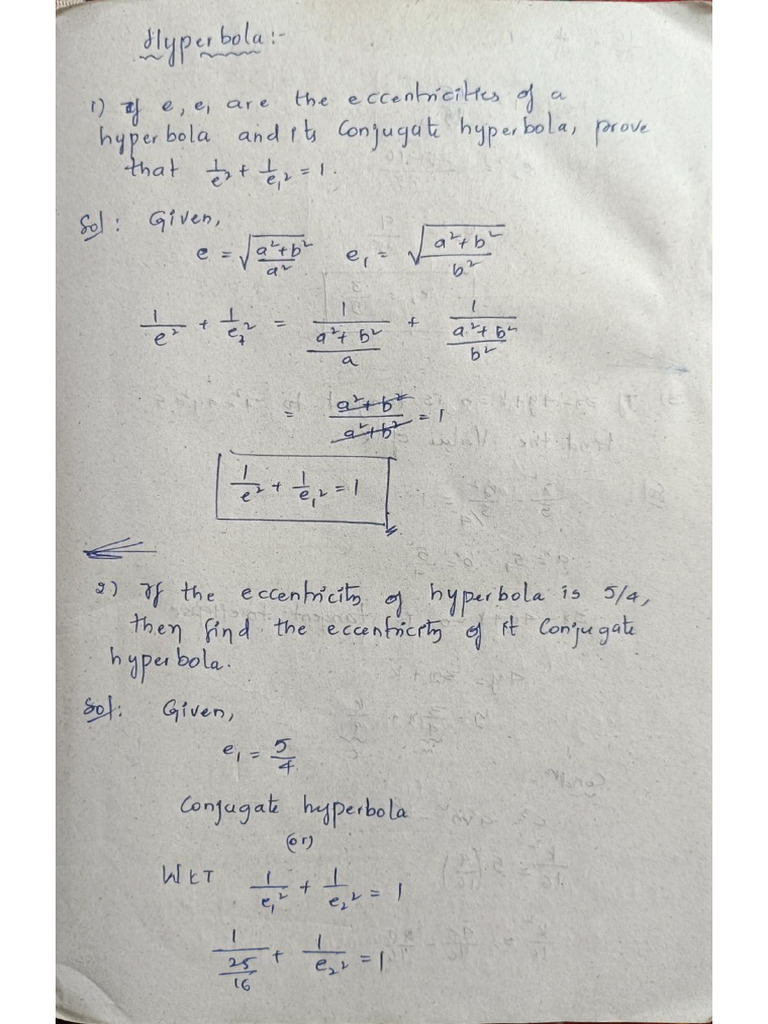 Hyperbola:-
1) If e, e₁ are the eccentricities of a
hyperbola and its Conjugate hyperbola, prove
that 1/e² + 1/e₁² = 1.
Sol: Given,
e = √((a²+b²)/a²) e₁ = √((a²+b²)/b²)
1/e² + 1/e₁² = 1/((a²+b²)/a) + 1/((a²+b²)/b²)
= (a²+b²)/(a²+b²) = 1
1/e² + 1/e₁² = 1
2) If the eccentricity of hyperbola is 5/4,
then find the eccentricity of it Conjugate
hyperbola.
Sol: Given,
e₁ = 5/4
Conjugate hyperbola
(or)
WKT 1/e₁² + 1/e₂² = 1
1/(25/16) + 1/e₂² = 1